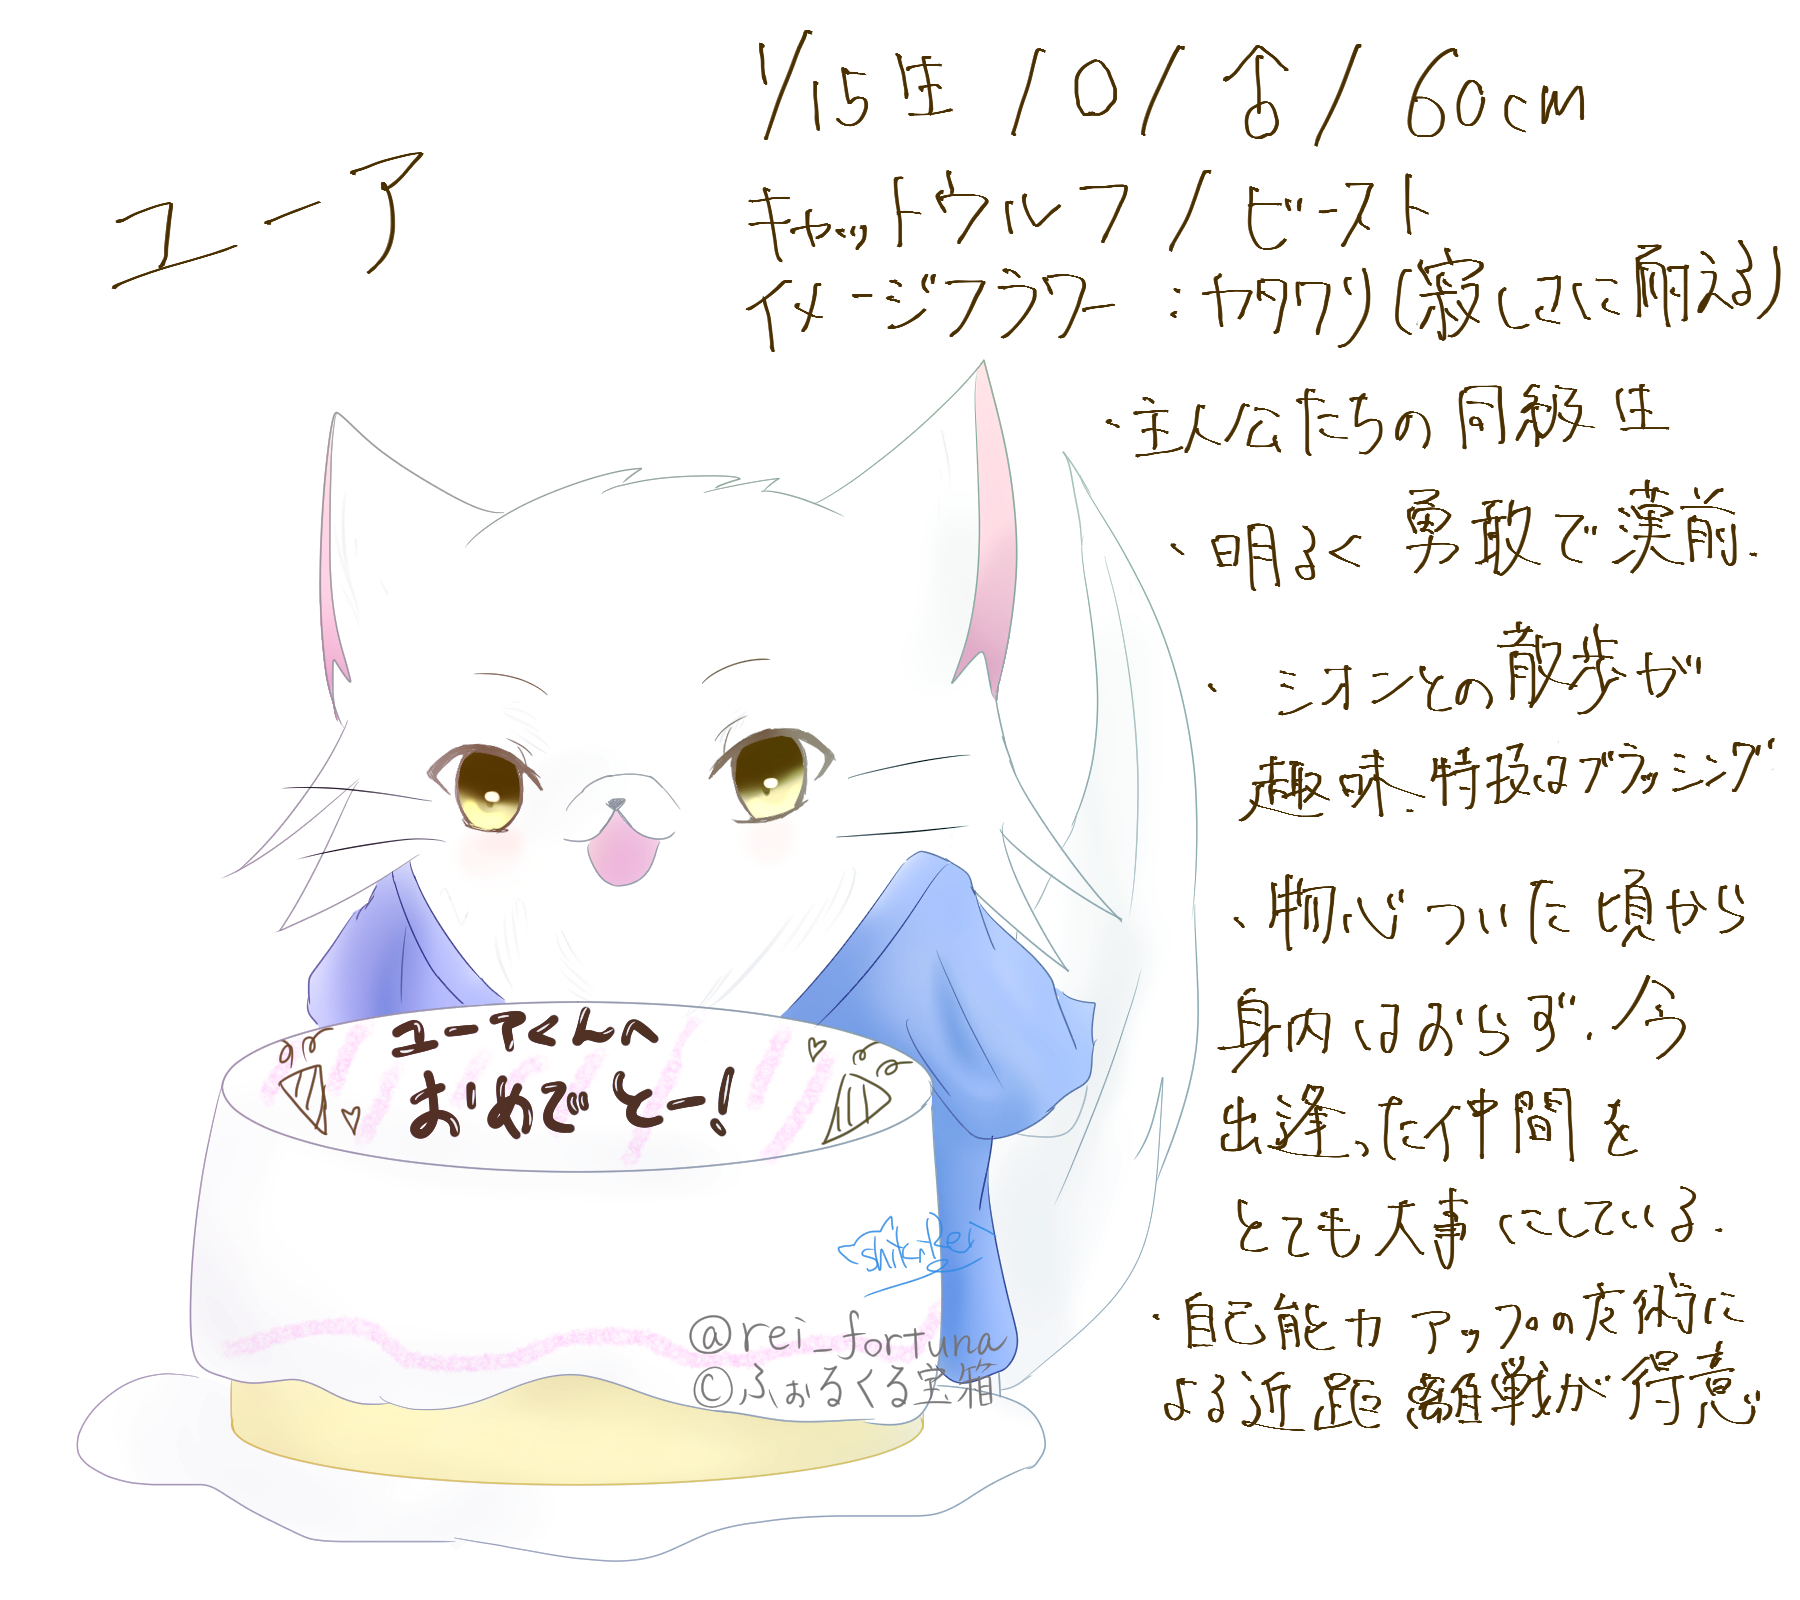 ユーア
1/15生/O/♂/60cm
キャットウルフ/ビースト
イメージフラワー:カタクリ(寂しさに耐える)
・主人公たちの同級生
・明るく勇敢で漢前.
・シオンとの散歩が
趣味.特技はブラッシング
・物心ついた頃から
身内はおらず.今
出逢った仲間を
とても大事にしている.
・自己能力アップの友術に
よる近距離戦が得意
ユーアくんへ
おめでとー!
shikiRei
@rei_fortuna
©ふぉるくる宝箱